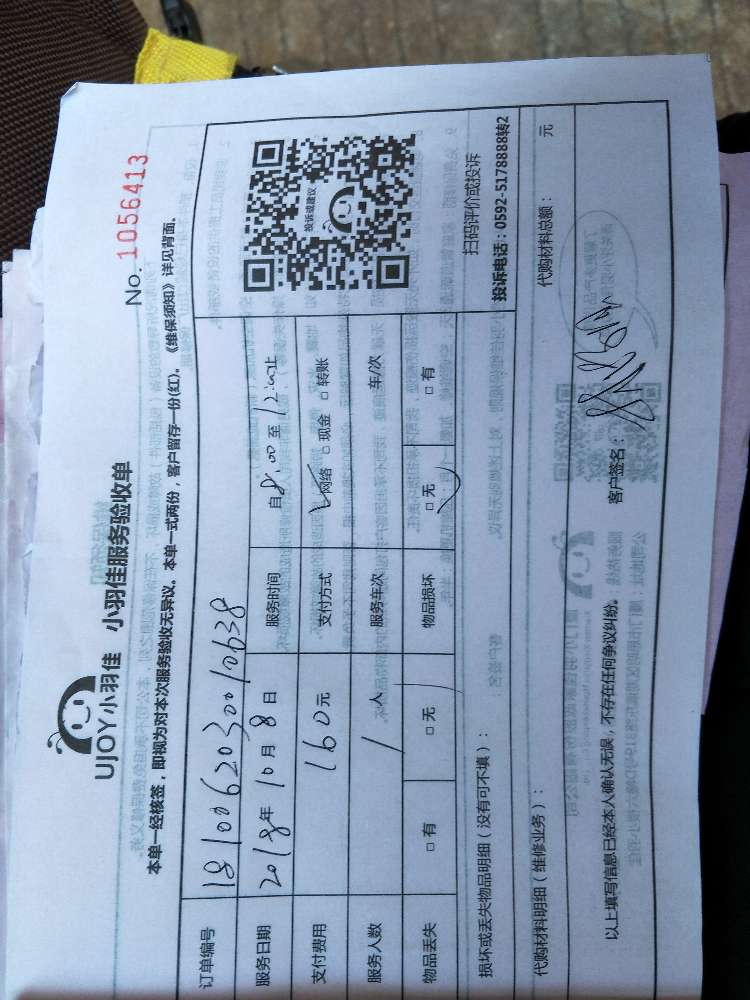 UJOY小羽佳 小羽佳服务验收单
No. 1056413
本单一经核签，即视为对本次服务验收无异议。本单一式两份，客户留存一份(红)。《维保须知》详见背面。
订单编号 1810062030010638
服务日期 2018年 10月 8日 服务时间 自8:00 至 12:00止
支付费用 160元 支付方式 ☑网络 □现金 □转账
服务人数 1人 服务车次 车/次
物品丢失 □有 □无 物品损坏 □无 □有
投诉或建议
扫码评价或投诉
投诉电话：0592-5178888转2
损坏或丢失物品明细（没有可不填）：
代购材料明细（维修业务）： 代购材料总额： 元
以上填写信息已经本人确认无误，不存在任何争议纠纷。 客户签名：